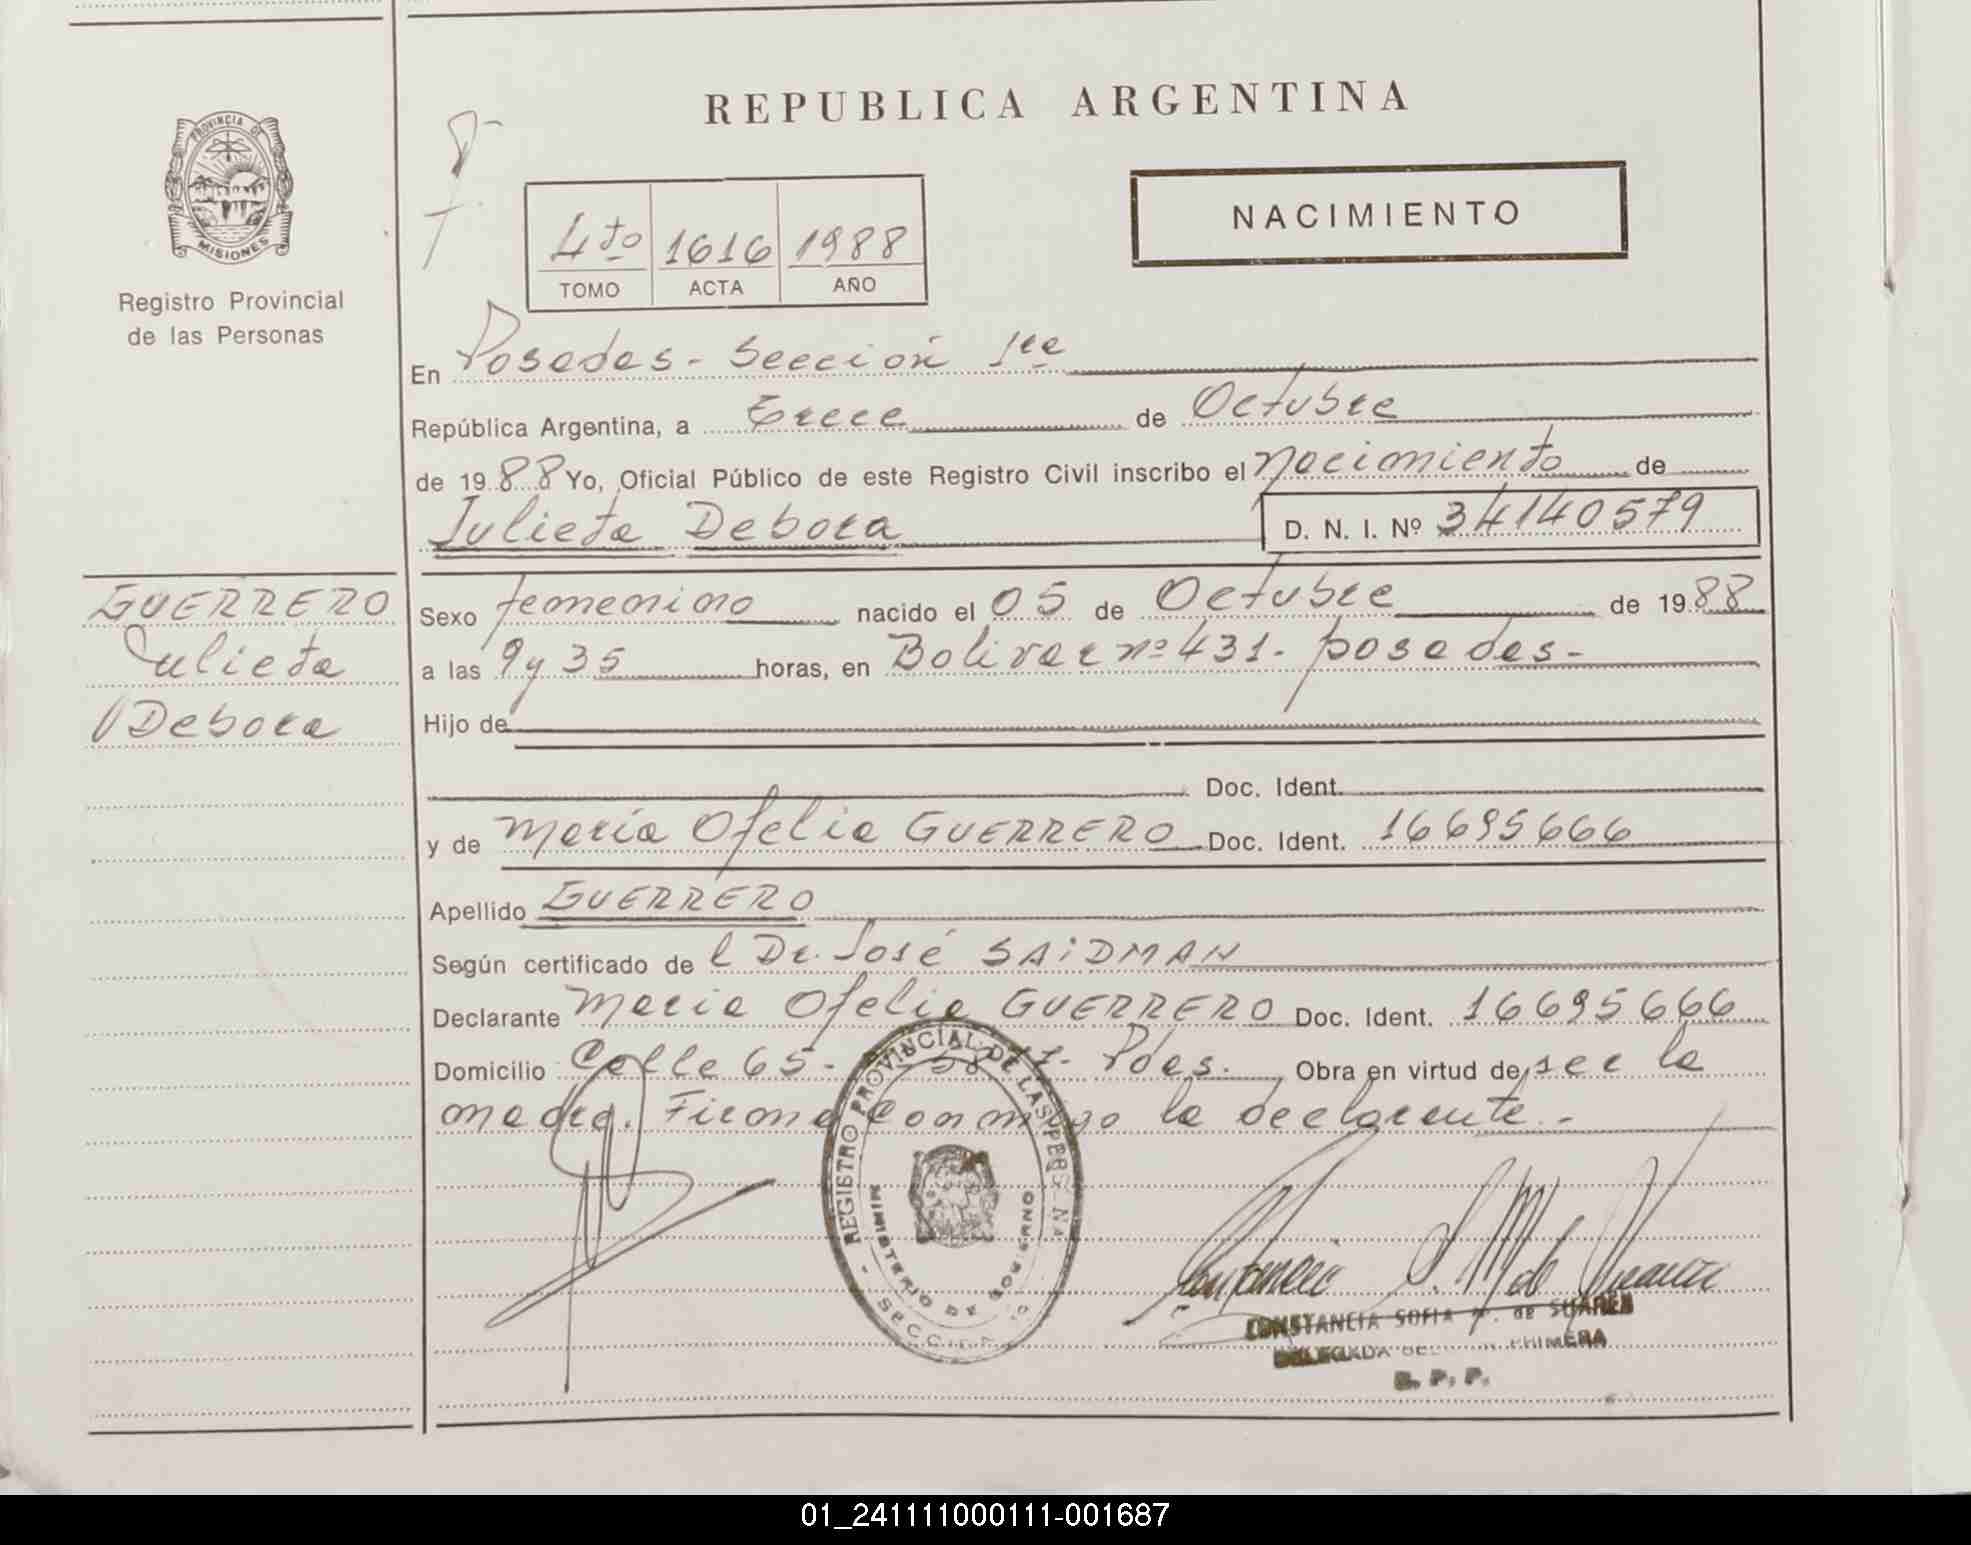 REPUBLICA ARGENTINA
PROVINCIA DE
MISIONES
Registro Provincial
de las Personas
4to 1616 1988
TOMO ACTA AÑO
NACIMIENTO
En Posadas - Sección 1ra
República Argentina, a Trece de Octubre
de 1988 Yo, Oficial Público de este Registro Civil inscribo el nacimiento de
Julieta Debora D. N. I. Nº 34140579
GUERRERO
Julieta
Debora
Sexo femenino nacido el 05 de Octubre de 1988
a las 9 y 35 horas, en Bolivar nº 431 - posadas -
Hijo de
Doc. Ident.
y de María Ofelia GUERRERO Doc. Ident. 16695666
Apellido GUERRERO
Según certificado de l Dr. José SAIDMAN
Declarante María Ofelia GUERRERO Doc. Ident. 16695666
Domicilio Calle 65 - Pdas. Obra en virtud de ser la
madre. Firma conmigo la declarante. -
REGISTRO PROVINCIAL DE LAS PERS
MINISTERIO DE GOBIERNO
CONSTANCIA SOFIA M. de SUAREZ
DELEGADA PRIMERA
R. P. P.
01_241111000111-001687